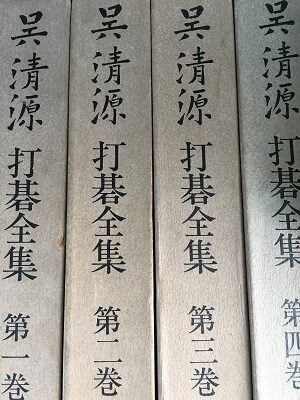 呉清源 打碁全集 第一巻
呉清源 打碁全集 第二巻
呉清源 打碁全集 第三巻
呉清源 打碁全集 第四巻